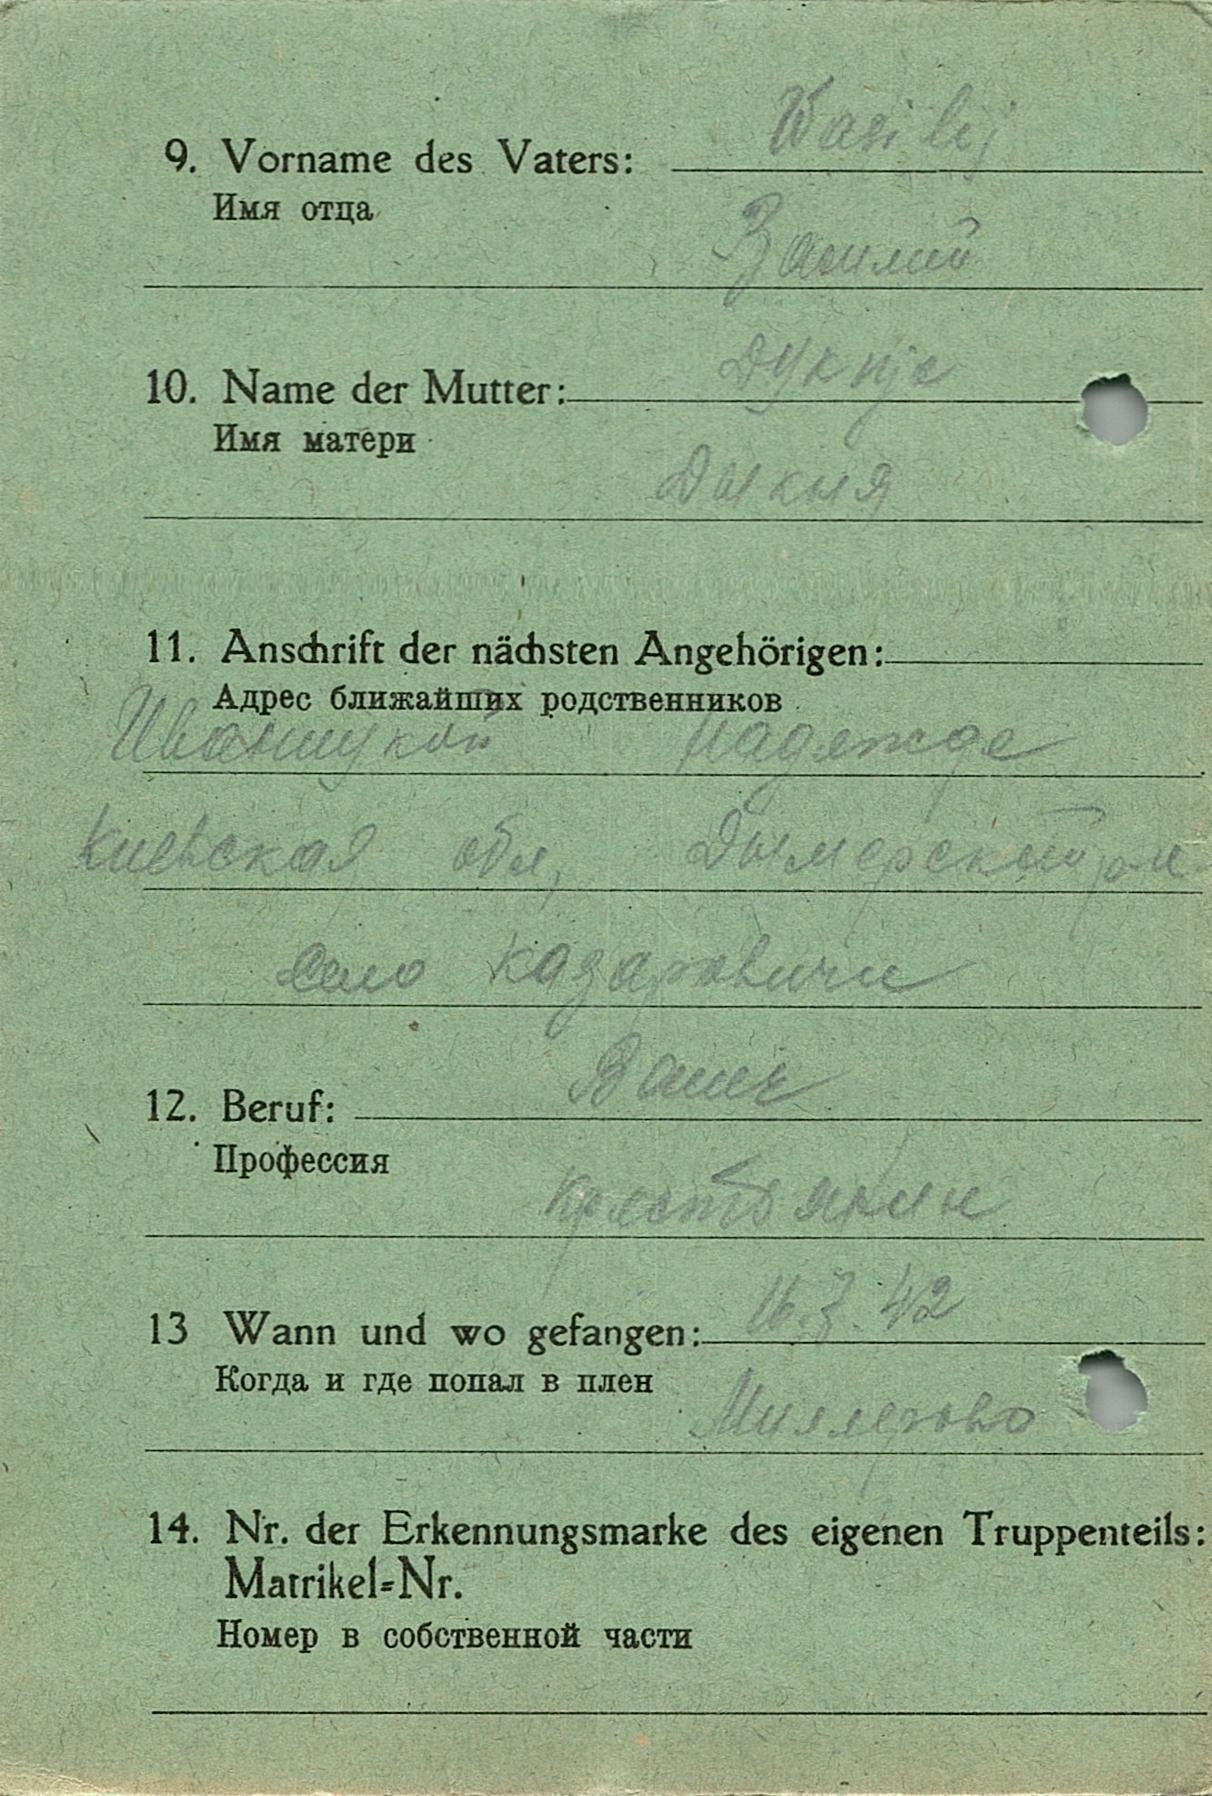 9. Vorname des Vaters: Wasilij
Имя отца
Василий
10. Name der Mutter:
Имя матери
11. Anschrift der nächsten Angehörigen:
Адрес ближайших родственников
Иваницкой Надежде
Киевская обл, Дымерский р-н
село Казаровичи
12. Beruf: Bauer
Профессия
Крестьянин
13 Wann und wo gefangen: 16.7.42
Когда и где попал в плен
Миллерово
14. Nr. der Erkennungsmarke des eigenen Truppenteils:
Matrikel=Nr.
Номер в собственной части